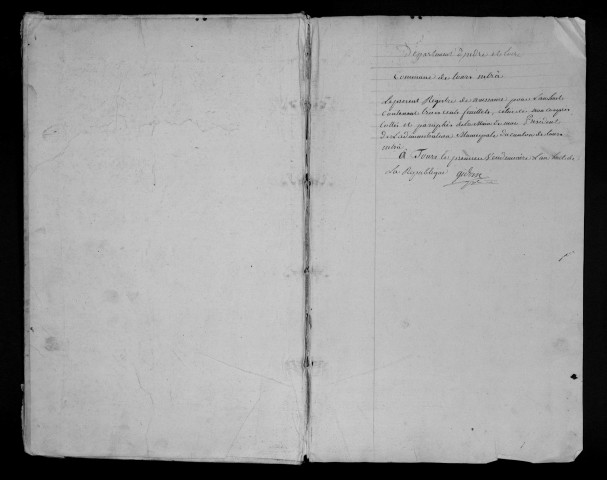 Département d'indre et loire
Commune de tours intrà
Le present Registre de naissance pour l'an huit
Contenant trois cents feuillets, celui-ci non compris
Cotté et paraphés de la main de moi President
de L'administration Municipale du canton de tours
intrà
A Tours le premier Vendemiaire L'an huit de
La Republique